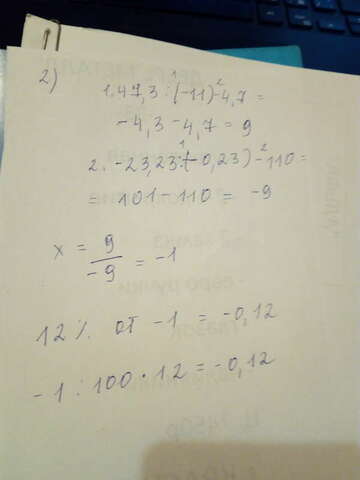 2)
1. 47,3 : (-11) - 4,7 =
1 2
-4,3 - 4,7 = 9
2. -23,23 : (-0,23) - 110 =
1 2
= 101 - 110 = -9
x = 9/-9 = -1
12 % от -1 = -0,12
-1 : 100 · 12 = -0,12